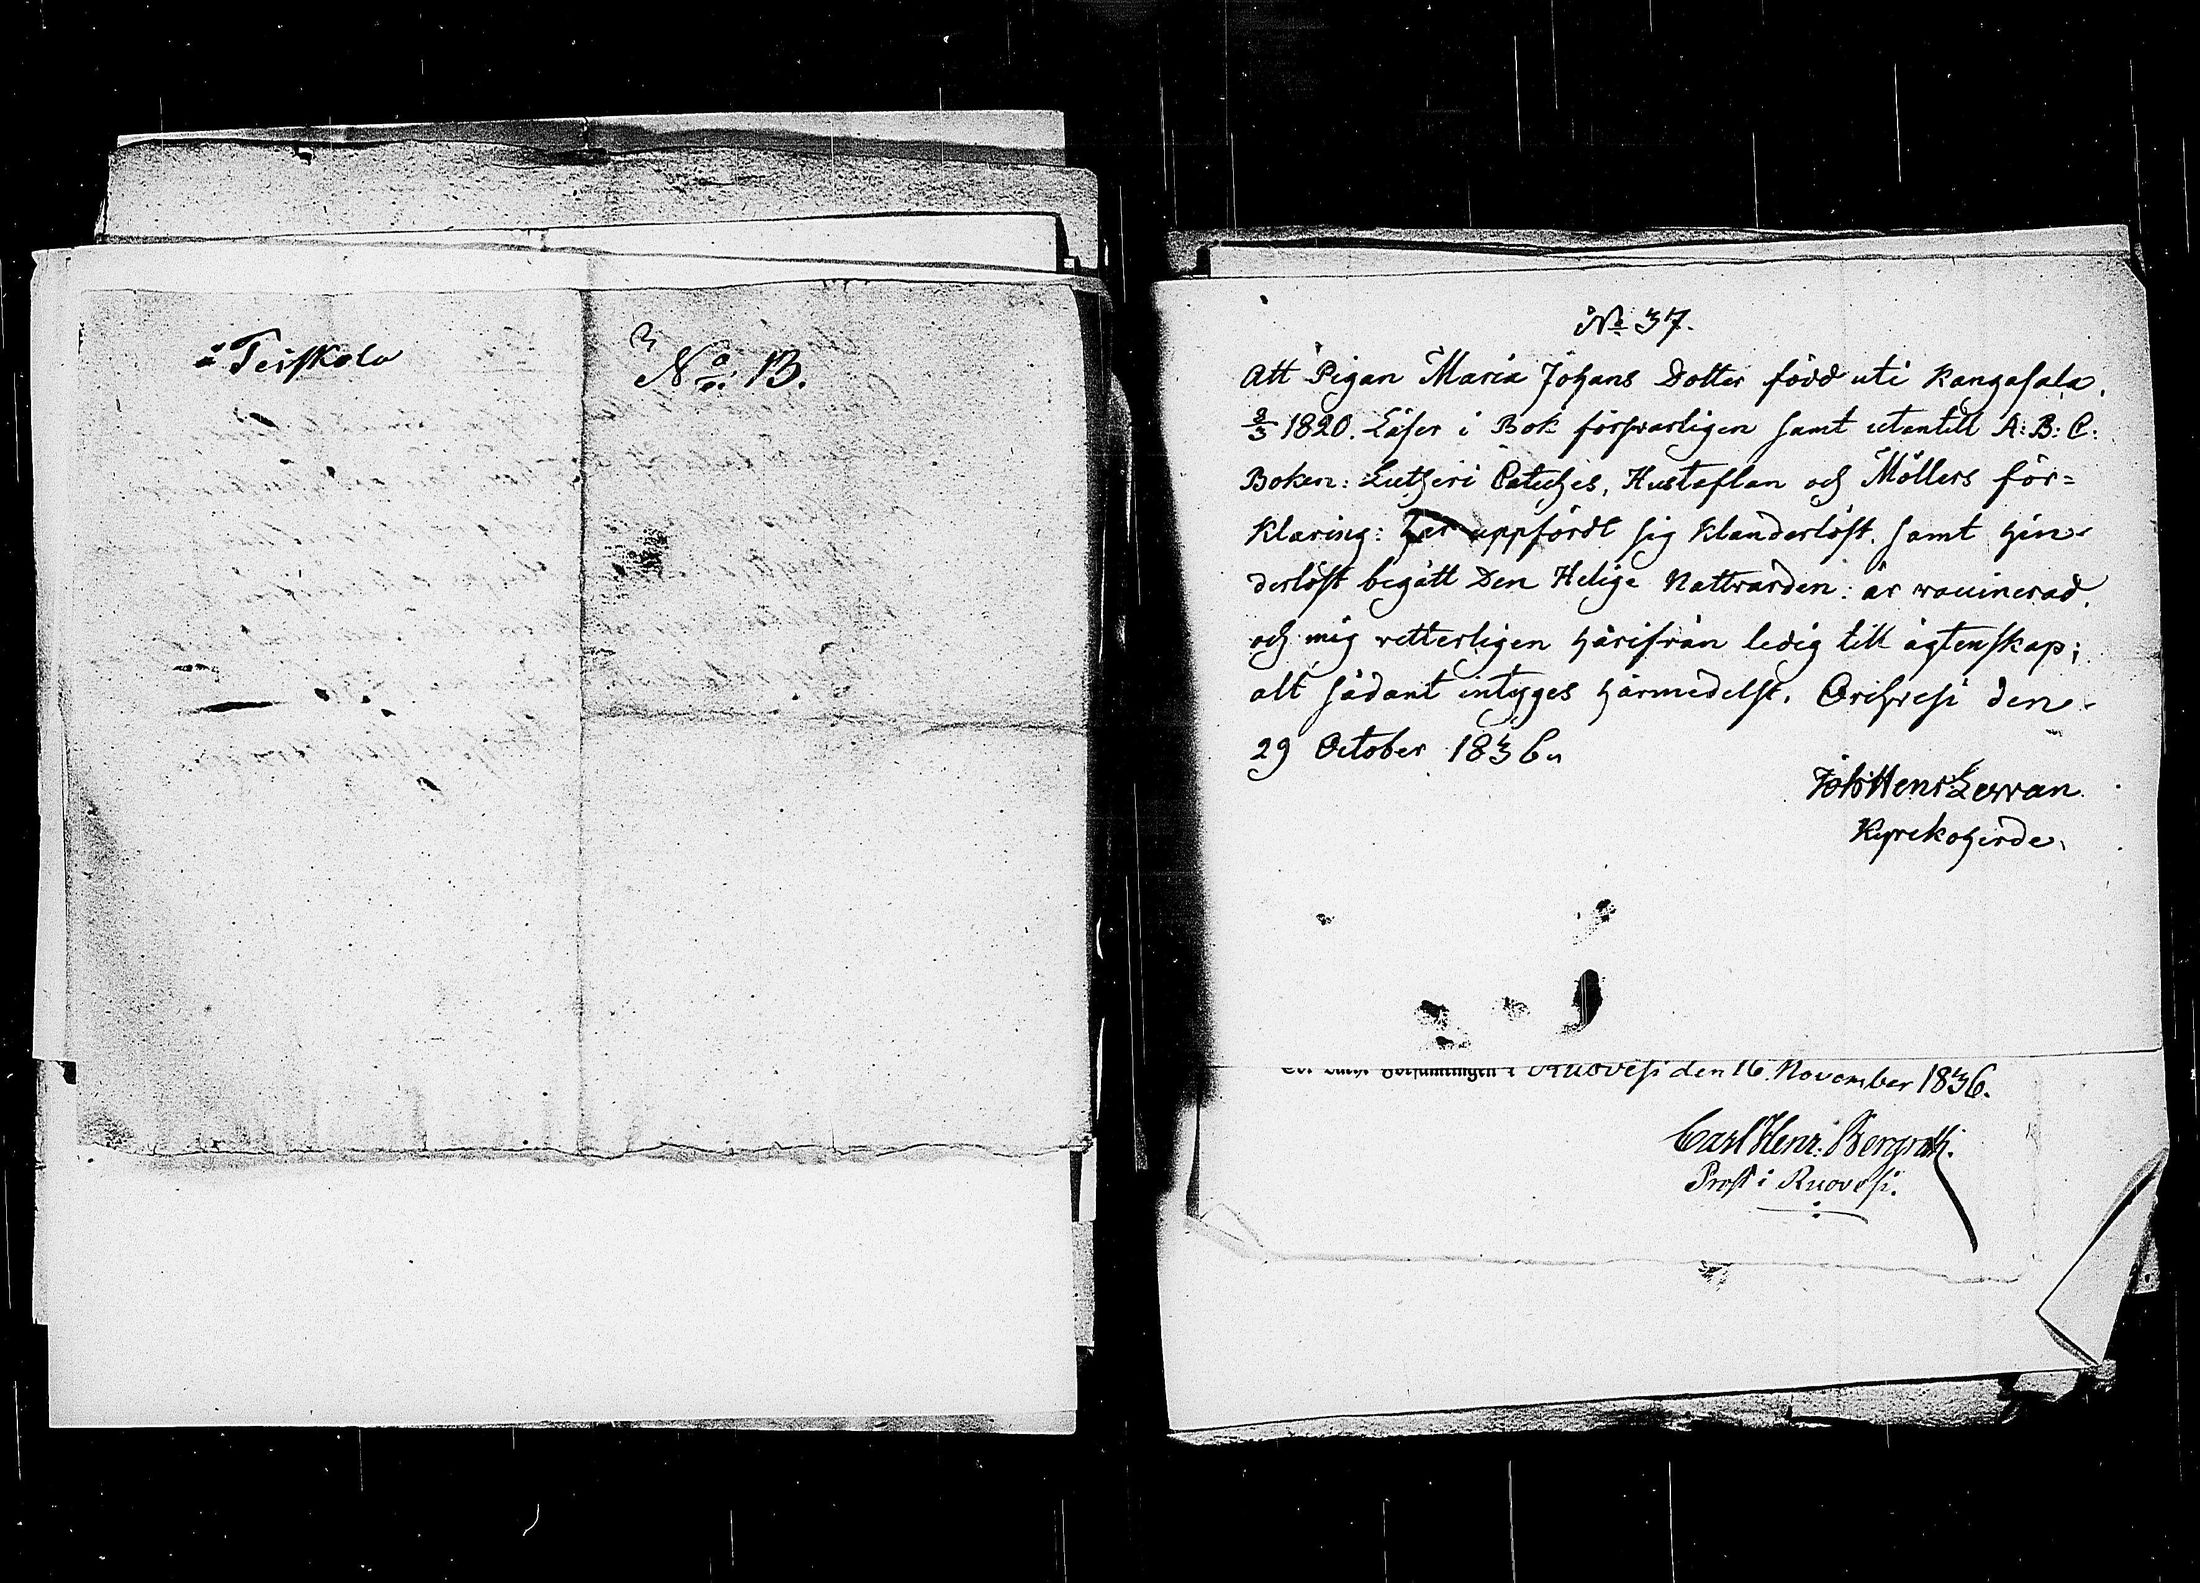 i Teiskola
No: 13.
No 37.
Att Pigan Maria Johans Dotter född uti Kangasala,
2/3 1820. Läser i Bok försvarligen samt utantill A:B:C:
Boken: Lutheri Cateches, Hustaflan och Möllers för=
klaring: har uppfördt sig klanderlöst, samt hin-
derlöst begått Den Helige Nattvarden: är vaccinerad,
och mig vetterligen härifrån ledig till ägtenskap;
alt sådant intygges härmedelst. Orihvesi den
29 October 1836.
Joh Henr
Kyrckoherde,
Ev. Luth. Församlingen i Ruovesi den 16 November 1836.
Carl Henr: Bergroth.
Prost i Ruovesi.